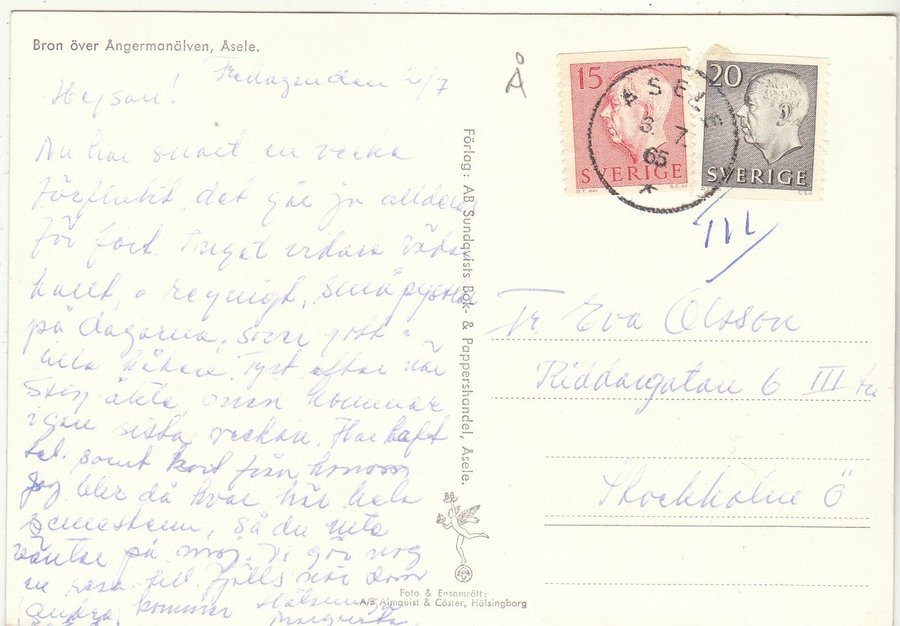 Bron över Ångermanälven, Åsele.
Fredagen den 2/7
Hejsan!
Nu har snart en vecka
förflutit, det går ju alldeles
för fort. Inget vidare väder
kallt o regnigt, småpysslar
på dagarna, sover gott i
lilla kåken. Tyst efter när
Stig åkte, men kommer
igen sista veckan. Har haft
tel. samt kort från honom
Jag blir då kvar här hela
semestern, så du
väntar på mig. Vi gör nog
en resa till fjälls när dom
andra kommer Hälsningar
Margareta
Förlag: AB Sundqvists Bok- & Pappershandel, Åsele.
Foto & Ensamrätt:
A/B Almquist & Cöster, Hälsingborg
Å
15
SVERIGE
20
SVERIGE
ÅSELE
6. 7.
65
Fr Eva Olsson
Riddargatan 6 III tr
Stockholm Ö